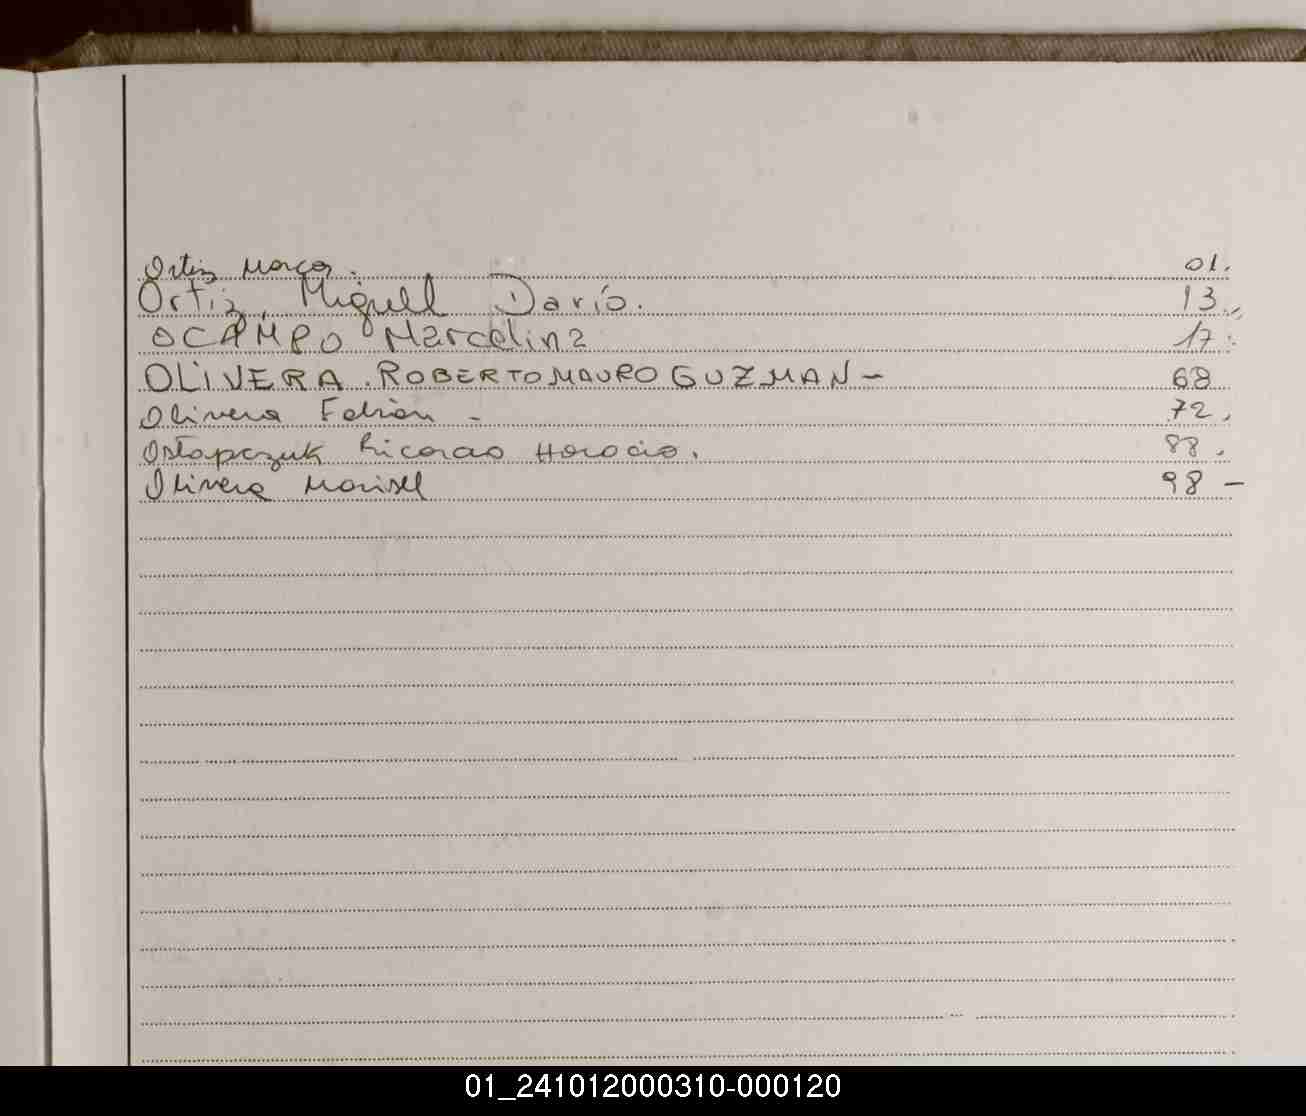 Ortiz Marcos. 01.
Ortiz, Miguel Darío. 13.
OCAMPO Marcelina 17.
OLIVERA. ROBERTO MAURO GUZMAN - 68
Olivera Fabián - 72.
Ostapczuk Ricardo Horacio. 88.
Olivera Marisel 98 -
01_241012000310-000120